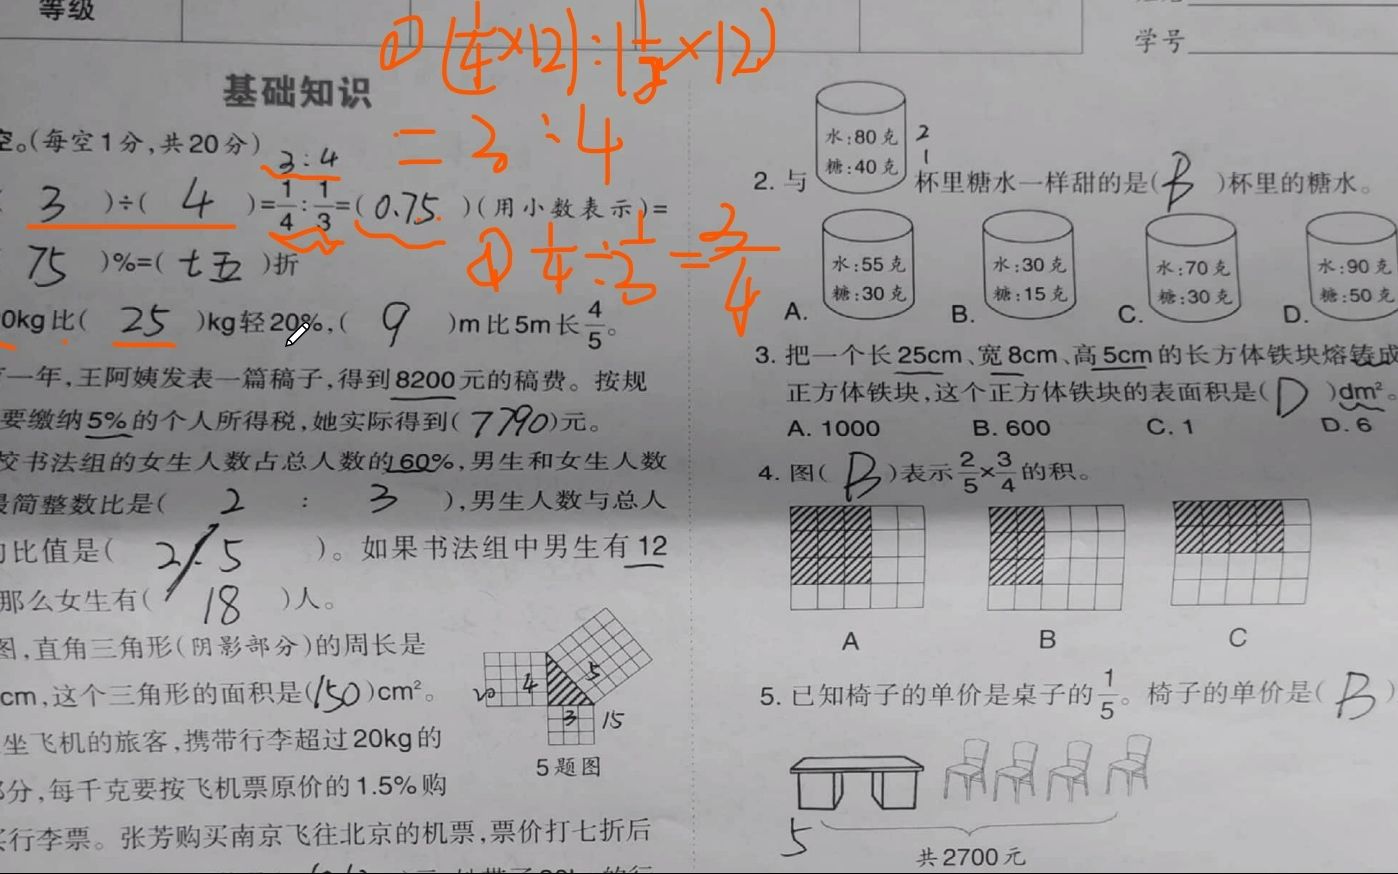 等级
学号
① (1/4×12):(1/3×12)
= 3:4
基础知识
空。(每空1分,共20分)
3:4
3 )÷( 4 )=1/4:1/3=(0.75 )(用小数表示)=
75 )%=( 七五 )折
① 1/4÷1/3=3/4
0kg比( 25 )kg轻20%,( 9 )m比5m长4/5。
一年,王阿姨发表一篇稿子,得到8200元的稿费。按规
要缴纳5%的个人所得税,她实际得到(7790)元。
校书法组的女生人数占总人数的60%,男生和女生人数
最简整数比是( 2 : 3 ),男生人数与总人
比值是( 2/5 )。如果书法组中男生有12
那么女生有( 18 )人。
图,直角三角形(阴影部分)的周长是
cm,这个三角形的面积是(150)cm²。
20 4 5
3 15
5题图
坐飞机的旅客,携带行李超过20kg的
部分,每千克要按飞机票原价的1.5%购
买行李票。张芳购买南京飞往北京的机票,票价打七折后
水:80克 2
糖:40克 1
2. 与 杯里糖水一样甜的是( B )杯里的糖水。
水:55克 水:30克 水:70克 水:90克
糖:30克 糖:15克 糖:30克 糖:50克
A. B. C. D.
3. 把一个长25cm、宽8cm、高5cm的长方体铁块熔铸成
正方体铁块,这个正方体铁块的表面积是( D )dm²。
A. 1000 B. 600 C. 1 D. 6
4. 图( B )表示2/5×3/4的积。
A B C
5. 已知椅子的单价是桌子的1/5。椅子的单价是( B )
5
共2700元